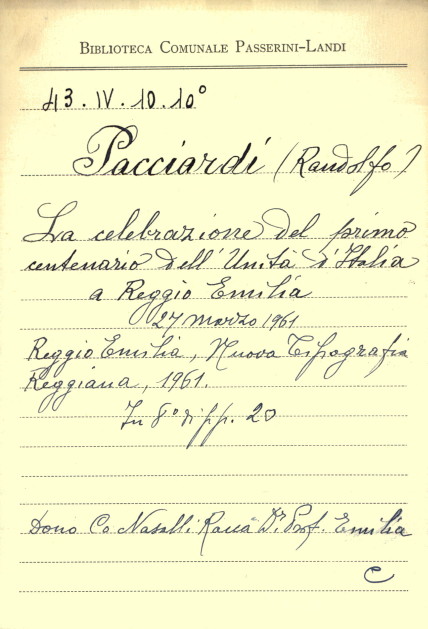 BIBLIOTECA COMUNALE PASSERINI-LANDI
43.IV.10.10°
Pacciardi (Randolfo)
La celebrazione del primo
centenario dell'Unità d'Italia
a Reggio Emilia
27 marzo 1961
Reggio Emilia, Nuova Tipografia
Reggiana, 1961.
In 8° di pp. 20
Dono Co Nasalli Rocca Dr. Prof. Emilia
C